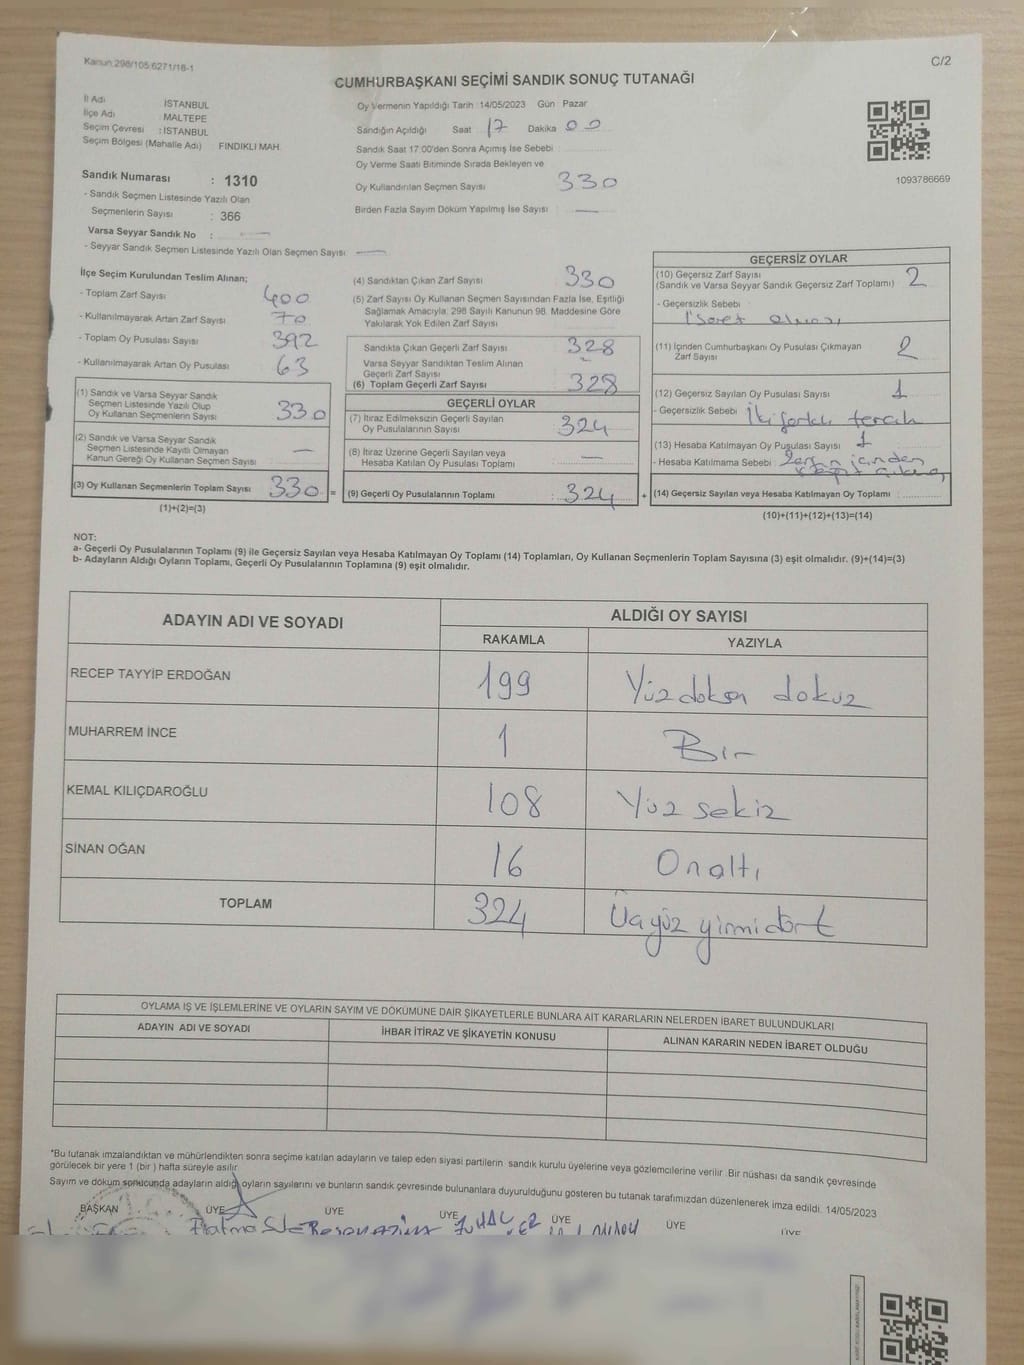 Kanun:298/105.6271/18-1
C/2
CUMHURBAŞKANI SEÇİMİ SANDIK SONUÇ TUTANAĞI
İl Adı İSTANBUL
İlçe Adı : MALTEPE
Seçim Çevresi : İSTANBUL
Seçim Bölgesi (Mahalle Adı) FINDIKLI MAH.
Oy Vermenin Yapıldığı Tarih :14/05/2023 Gün Pazar
Sandığın Açıldığı Saat 17 Dakika 00
Sandık Saat 17:00'den Sonra Açılmış İse Sebebi
Oy Verme Saati Bitiminde Sırada Bekleyen ve
Oy Kullandırılan Seçmen Sayısı 330
Birden Fazla Sayım Döküm Yapılmış İse Sayısı —
1093786669
Sandık Numarası : 1310
- Sandık Seçmen Listesinde Yazılı Olan
Seçmenlerin Sayısı : 366
Varsa Seyyar Sandık No : —
- Seyyar Sandık Seçmen Listesinde Yazılı Olan Seçmen Sayısı —
İlçe Seçim Kurulundan Teslim Alınan;
- Toplam Zarf Sayısı 400
- Kullanılmayarak Artan Zarf Sayısı 70
- Toplam Oy Pusulası Sayısı 392
- Kullanılmayarak Artan Oy Pusulası 63
(1) Sandık ve Varsa Seyyar Sandık
Seçmen Listesinde Yazılı Olup
Oy Kullanan Seçmenlerin Sayısı 330
(2) Sandık ve Varsa Seyyar Sandık
Seçmen Listesinde Kayıtlı Olmayan
Kanun Gereği Oy Kullanan Seçmen Sayısı —
(3) Oy Kullanan Seçmenlerin Toplam Sayısı 330 =
(1)+(2)=(3)
(4) Sandıktan Çıkan Zarf Sayısı 330
(5) Zarf Sayısı Oy Kullanan Seçmen Sayısından Fazla İse, Eşitliği
Sağlamak Amacıyla, 298 Sayılı Kanunun 98. Maddesine Göre
Yakılarak Yok Edilen Zarf Sayısı
Sandıkta Çıkan Geçerli Zarf Sayısı 328
Varsa Seyyar Sandıktan Teslim Alınan
Geçerli Zarf Sayısı
(6) Toplam Geçerli Zarf Sayısı 328
GEÇERLİ OYLAR
(7) İtiraz Edilmeksizin Geçerli Sayılan
Oy Pusulalarının Sayısı 324
(8) İtiraz Üzerine Geçerli Sayılan veya
Hesaba Katılan Oy Pusulası Toplamı —
(9) Geçerli Oy Pusulalarının Toplamı : 324 +
GEÇERSİZ OYLAR
(10) Geçersiz Zarf Sayısı 2
(Sandık ve Varsa Seyyar Sandık Geçersiz Zarf Toplamı)
- Geçersizlik Sebebi
İşaret olması
(11) İçinden Cumhurbaşkanı Oy Pusulası Çıkmayan
Zarf Sayısı 2
(12) Geçersiz Sayılan Oy Pusulası Sayısı 1
- Geçersizlik Sebebi İki farklı tercih
(13) Hesaba Katılmayan Oy Pusulası Sayısı 1
- Hesaba Katılmama Sebebi Zarfın içinden
(14) Geçersiz Sayılan veya Hesaba Katılmayan Oy Toplamı :
(10)+(11)+(12)+(13)=(14)
NOT:
a- Geçerli Oy Pusulalarının Toplamı (9) ile Geçersiz Sayılan veya Hesaba Katılmayan Oy Toplamı (14) Toplamları, Oy Kullanan Seçmenlerin Toplam Sayısına (3) eşit olmalıdır. (9)+(14)=(3)
b- Adayların Aldığı Oyların Toplamı, Geçerli Oy Pusulalarının Toplamına (9) eşit olmalıdır.
ADAYIN ADI VE SOYADI ALDIĞI OY SAYISI
RAKAMLA YAZIYLA
RECEP TAYYİP ERDOĞAN 199 Yüzdoksan dokuz
MUHARREM İNCE 1 Bir
KEMAL KILIÇDAROĞLU 108 Yüz sekiz
SİNAN OĞAN 16 Onaltı
TOPLAM 324 Üçyüz yirmidört
OYLAMA İŞ VE İŞLEMLERİNE VE OYLARIN SAYIM VE DÖKÜMÜNE DAİR ŞİKAYETLERLE BUNLARA AİT KARARLARIN NELERDEN İBARET BULUNDUKLARI
ADAYIN ADI VE SOYADI İHBAR İTİRAZ VE ŞİKAYETİN KONUSU ALINAN KARARIN NEDEN İBARET OLDUĞU
*Bu tutanak imzalandıktan ve mühürlendikten sonra seçime katılan adayların ve talep eden siyasi partilerin sandık kurulu üyelerine veya gözlemcilerine verilir .Bir nüshası da sandık çevresinde
görülecek bir yere 1 (bir ) hafta süreyle asılır.
Sayım ve döküm sonucunda adayların aldığı oyların sayılarını ve bunların sandık çevresinde bulunanlara duyurulduğunu gösteren bu tutanak tarafımızdan düzenlenerek imza edildi. 14/05/2023
BAŞKAN ÜYE ÜYE ÜYE ÜYE ÜYE